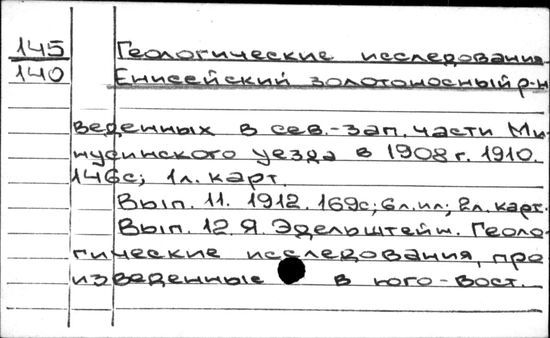 145
140
Геологические исследования.
Енисейский золотоносный р-н
веденных в сев.-зап. части Ми-
нусинского уезда в 1908 г. 1910.
146с; 1л. карт.
Вып. 11. 1912. 169с; 6л. ил; 2л. карт.
Вып. 12 Я. Эдельштейн. Геоло-
гические исследования, про
изведенные в юго-вост.